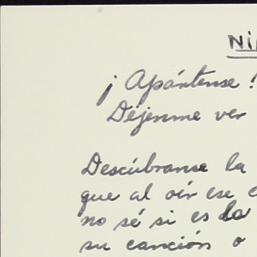 Ni
¡Apártense!
Déjenme ver
Descúbranse la
que al oír ese e
no sé si es la
su canción o